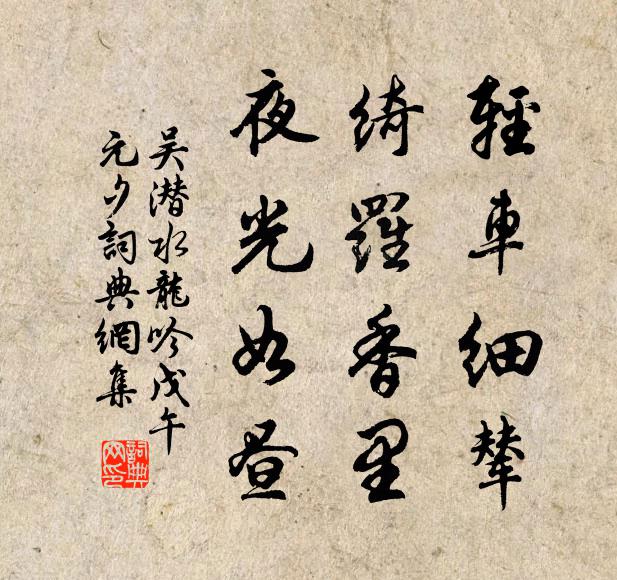 輕車細輦
綺羅香里
夜光如晝
吴潜水龍吟戊午
元夕詞典網集
詞典
网印